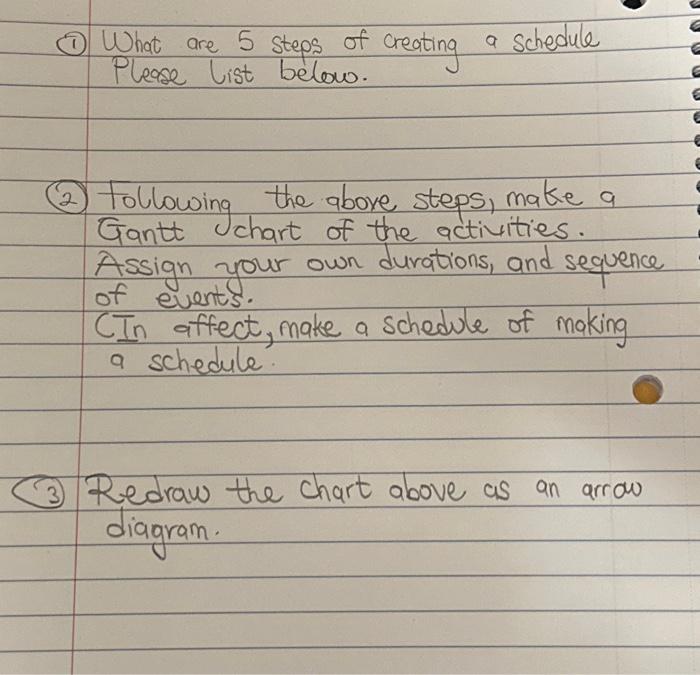 ① What are 5 steps of creating a schedule
Please list below.
② Following the above steps, make a
Gantt chart of the activities.
Assign your own durations, and sequence
of events.
(In affect, make a schedule of making
a schedule.
③ Redraw the chart above as an arrow
diagram.